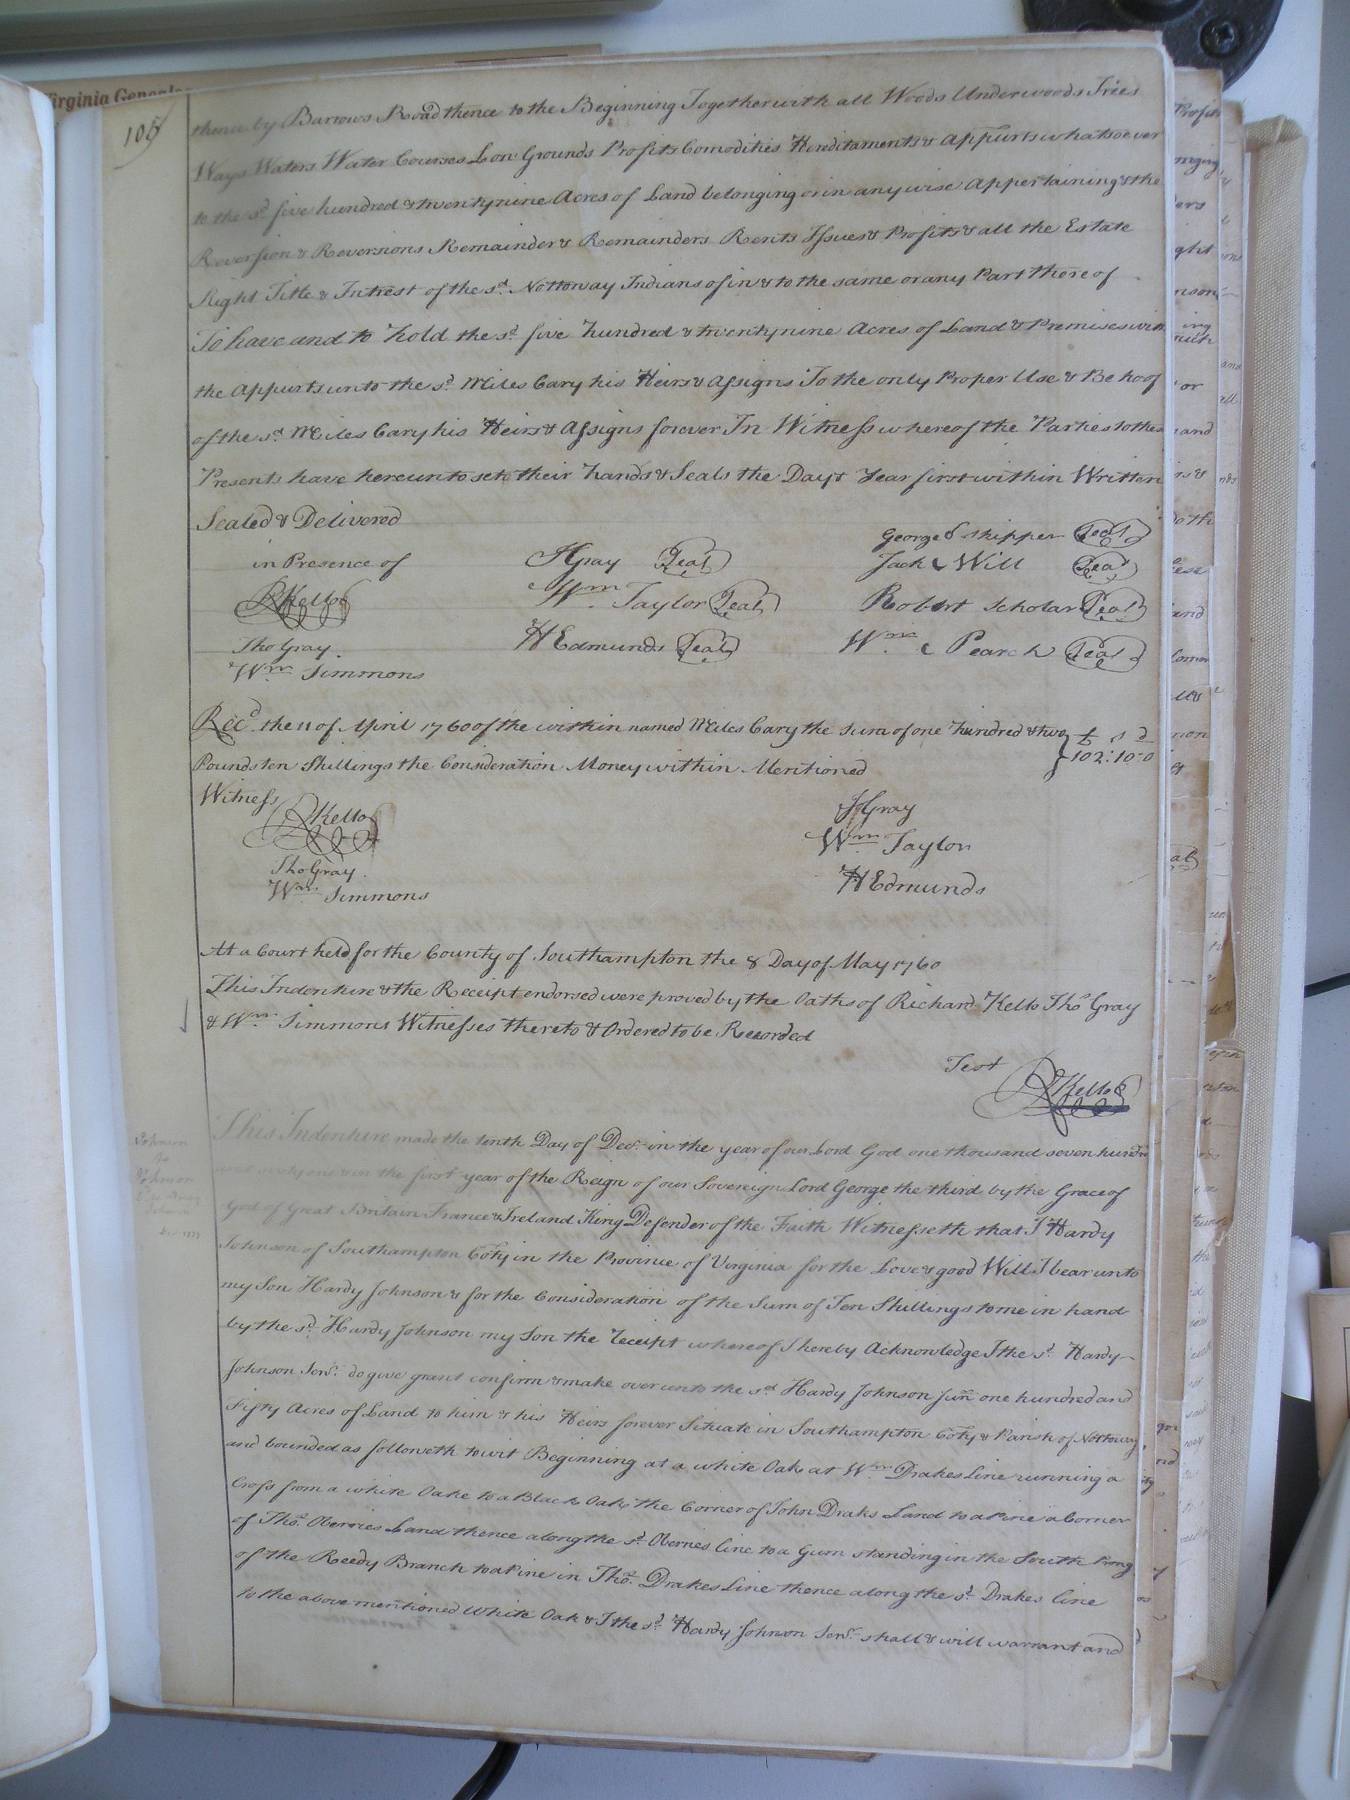 Virginia Genealo
105
thence by Barrows Road thence to the Beginning Together with all Woods Underwoods Trees
Ways Waters Water Courses Low Grounds Profits Comodities Hereditaments & Appurts whatsoever
to the sd. five hundred & twenty nine Acres of Land belonging or in any wise Appertaining & the
Reversion & Reversions Remainder & Remainders Rents Issues & Profits & all the Estate
Right Title & Intrest of the sd. Nottoway Indians of in & to the same or any Part there of
To have and to hold the sd. five hundred & twenty nine Acres of Land & Premises with
the Appurts unto the sd. Miles Cary his Heirs & Assigns To the only Proper Use & Behoof
of the sd. Miles Cary his Heirs & Assigns forever In Witness whereof the Parties to these
Presents have hereunto sett their hands & Seals the Day & Year first within Written
Sealed & Delivered
in Presence of
RKello
Tho Gray
Wm. Simmons
JGray Seal
Wm. Taylor Seal
HEdmunds Seal
George Skipper Seal
Jack Will Seal
Robert Scholar Seal
Wm. Pearch Seal
Recd. the 11 of April 1760 of the within named Miles Cary the sum of one hundred & two
Pounds ten Shillings the Consideration Money within Mentioned
£ s d
102:10:0
Witness
RKello
Tho Gray
Wm. Simmons
JGray
Wm. Taylor
HEdmunds
At a Court held for the County of Southampton the 8 Day of May 1760
This Indenture & the Receipt endorsed were proved by the Oaths of Richard Kello Thos Gray
& Wm. Simmons Witnesses thereto & Ordered to be Recorded
Test
RKello
Johnson
to
Johnson
This Indenture made the tenth Day of Decr. in the year of our Lord God one thousand seven hundred
and sixty one & in the first year of the Reign of our Sovereign Lord George the third by the Grace of
God of Great Britain France & Ireland King Defender of the Faith Witnesseth that I Hardy
Johnson of Southampton Coty in the Province of Virginia for the Love & good Will I bear unto
my Son Hardy Johnson & for the Consideration of the Sum of Ten Shillings to me in hand
by the sd. Hardy Johnson my Son the receipt whereof I hereby Acknowledge I the sd. Hardy
Johnson Senr. do give grant confirm & make over unto the sd. Hardy Johnson Junr. one hundred and
Fifty Acres of Land to him & his Heirs forever Situate in Southampton Coty & Parish of Nottoway
and bounded as followeth to wit Beginning at a white Oak at Wm. Drakes Line running a
Cross from a white Oake to a Black Oak, the Corner of John Draks Land to a Pine a Corner
of Thos. Oberries Land thence along the sd. Obernes line to a Gum standing in the South Prong
of the Reedy Branch to a Pine in Thos. Drakes Line thence along the sd. Drakes line
to the above mentioned White Oak & I the sd. Hardy Johnson Senr. shall & will warrant and